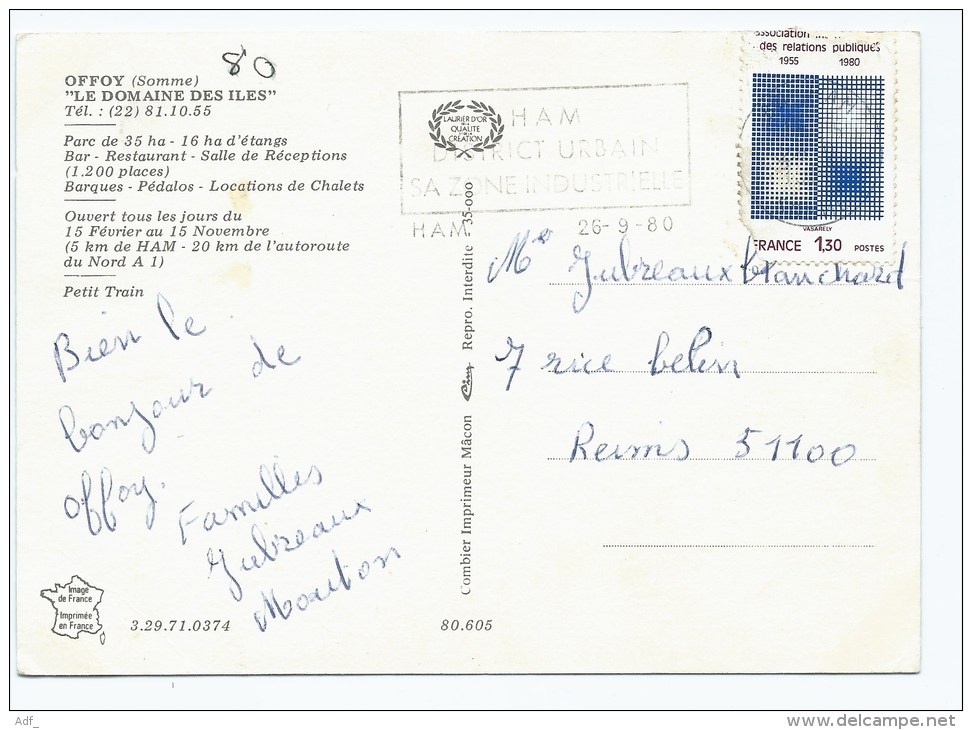 80
OFFOY (Somme)
"LE DOMAINE DES ILES"
Tél. : (22) 81.10.55
Parc de 35 ha - 16 ha d'étangs
Bar - Restaurant - Salle de Réceptions
(1.200 places)
Barques - Pédalos - Locations de Chalets
Ouvert tous les jours du
15 Février au 15 Novembre
(5 km de HAM - 20 km de l'autoroute
du Nord A 1)
Petit Train
Bien le
bonjour de
offoy.
Familles
Jubreaux
Mouton
Image
de France
Imprimée
en France
3.29.71.0374
80.605
Combier Imprimeur Mâcon Cim Repro. Interdite 35-000
LAURIER D'OR
DE LA
QUALITE
CREATION
HAM
DISTRICT URBAIN
SA ZONE INDUSTRIELLE
HAM.
26-9-80
association
des relations publiques
1955 1980
VASARELY
FRANCE 1,30 POSTES
Jubreaux blanchard
7 rue belin
Reims 51100
Adf_
delcampe.net